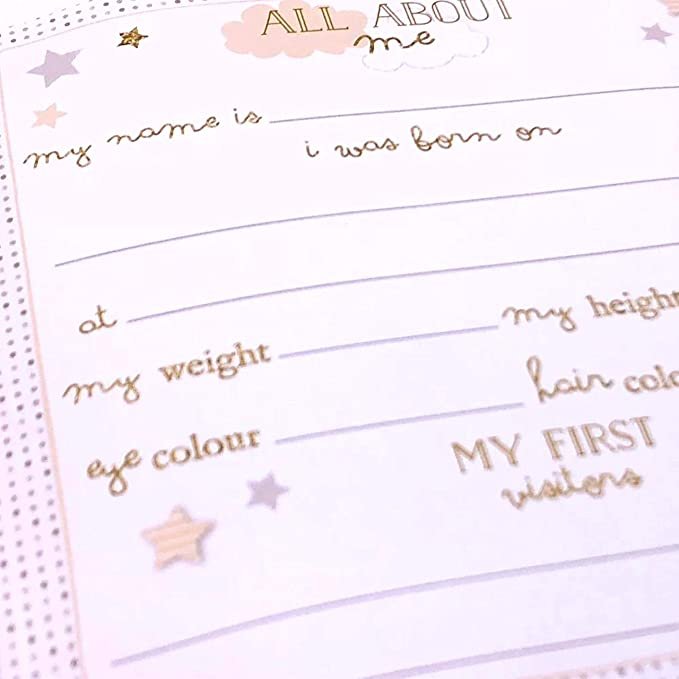 ALL ABOUT
me
my name is
i was born on
at
my weight my height
eye colour hair
MY FIRST
visitors